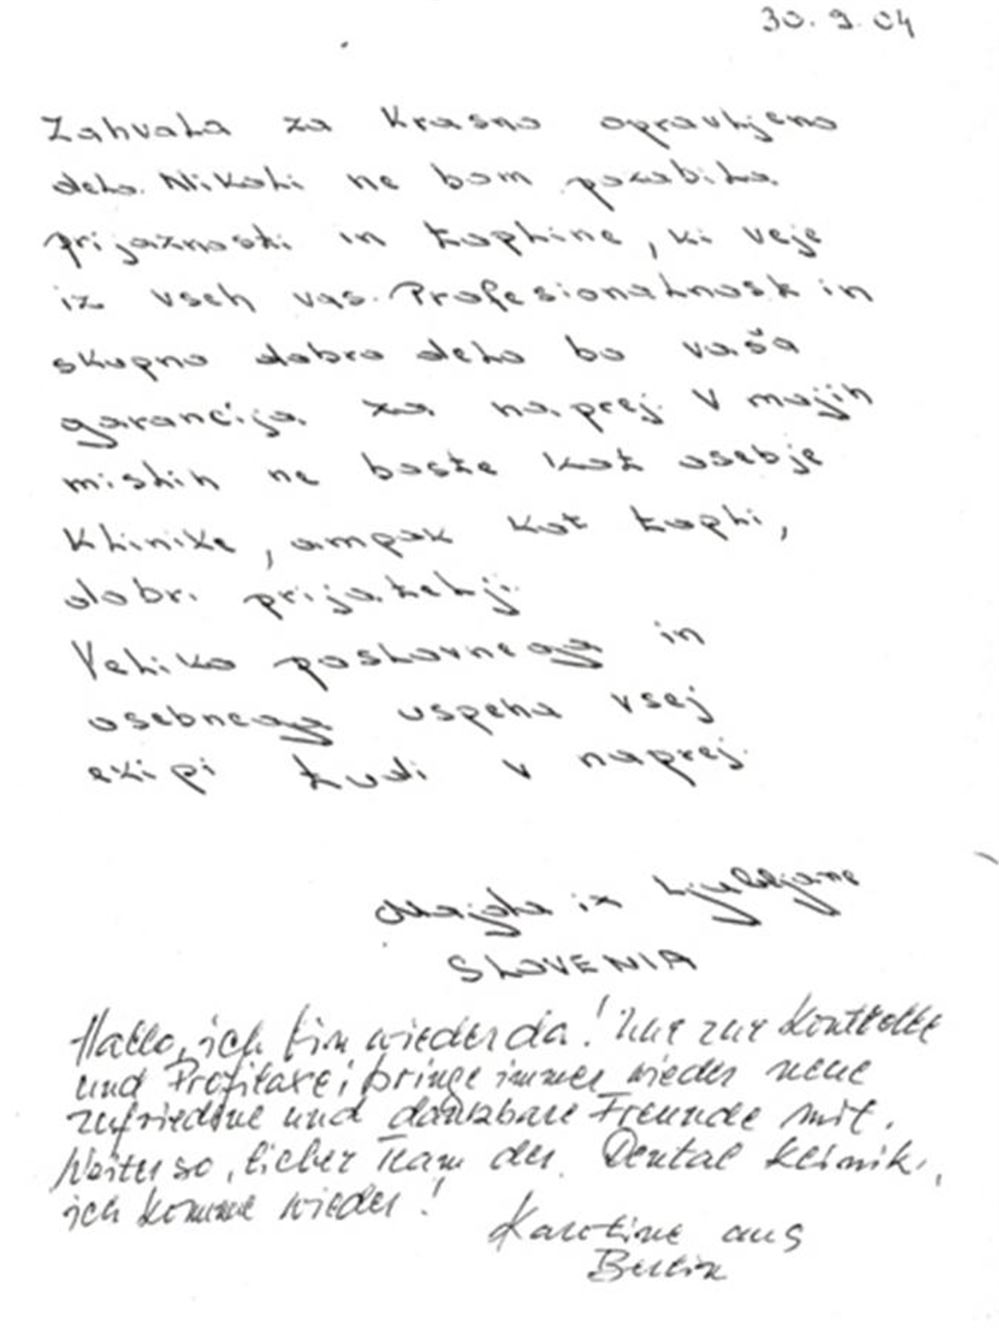 30. 9. 04
Zahvala za krasno opravljeno
delo. Nikoli ne bom pozabila
prijaznosti in topline, ki veje
iz vseh vas. Profesionalnost in
skupno dobro delo bo vaša
garancija za naprej. V mojih
mislih ne boste kot osebje
klinike, ampak kot topli,
dobri prijatelji.
Veliko poslovnega in
osebnega uspeha vsej
ekipi tudi v naprej.
Majda iz Ljubljane
SLOVENIA
Hallo, ich bin wieder da! Nur zur Kontrolle
und Profilaxe; bringe immer wieder neue
zufriedene und dankbare Freunde mit.
Weiter so, lieber Team der Dental Klinik,
ich komme wieder!
Karoline aus
Berlin